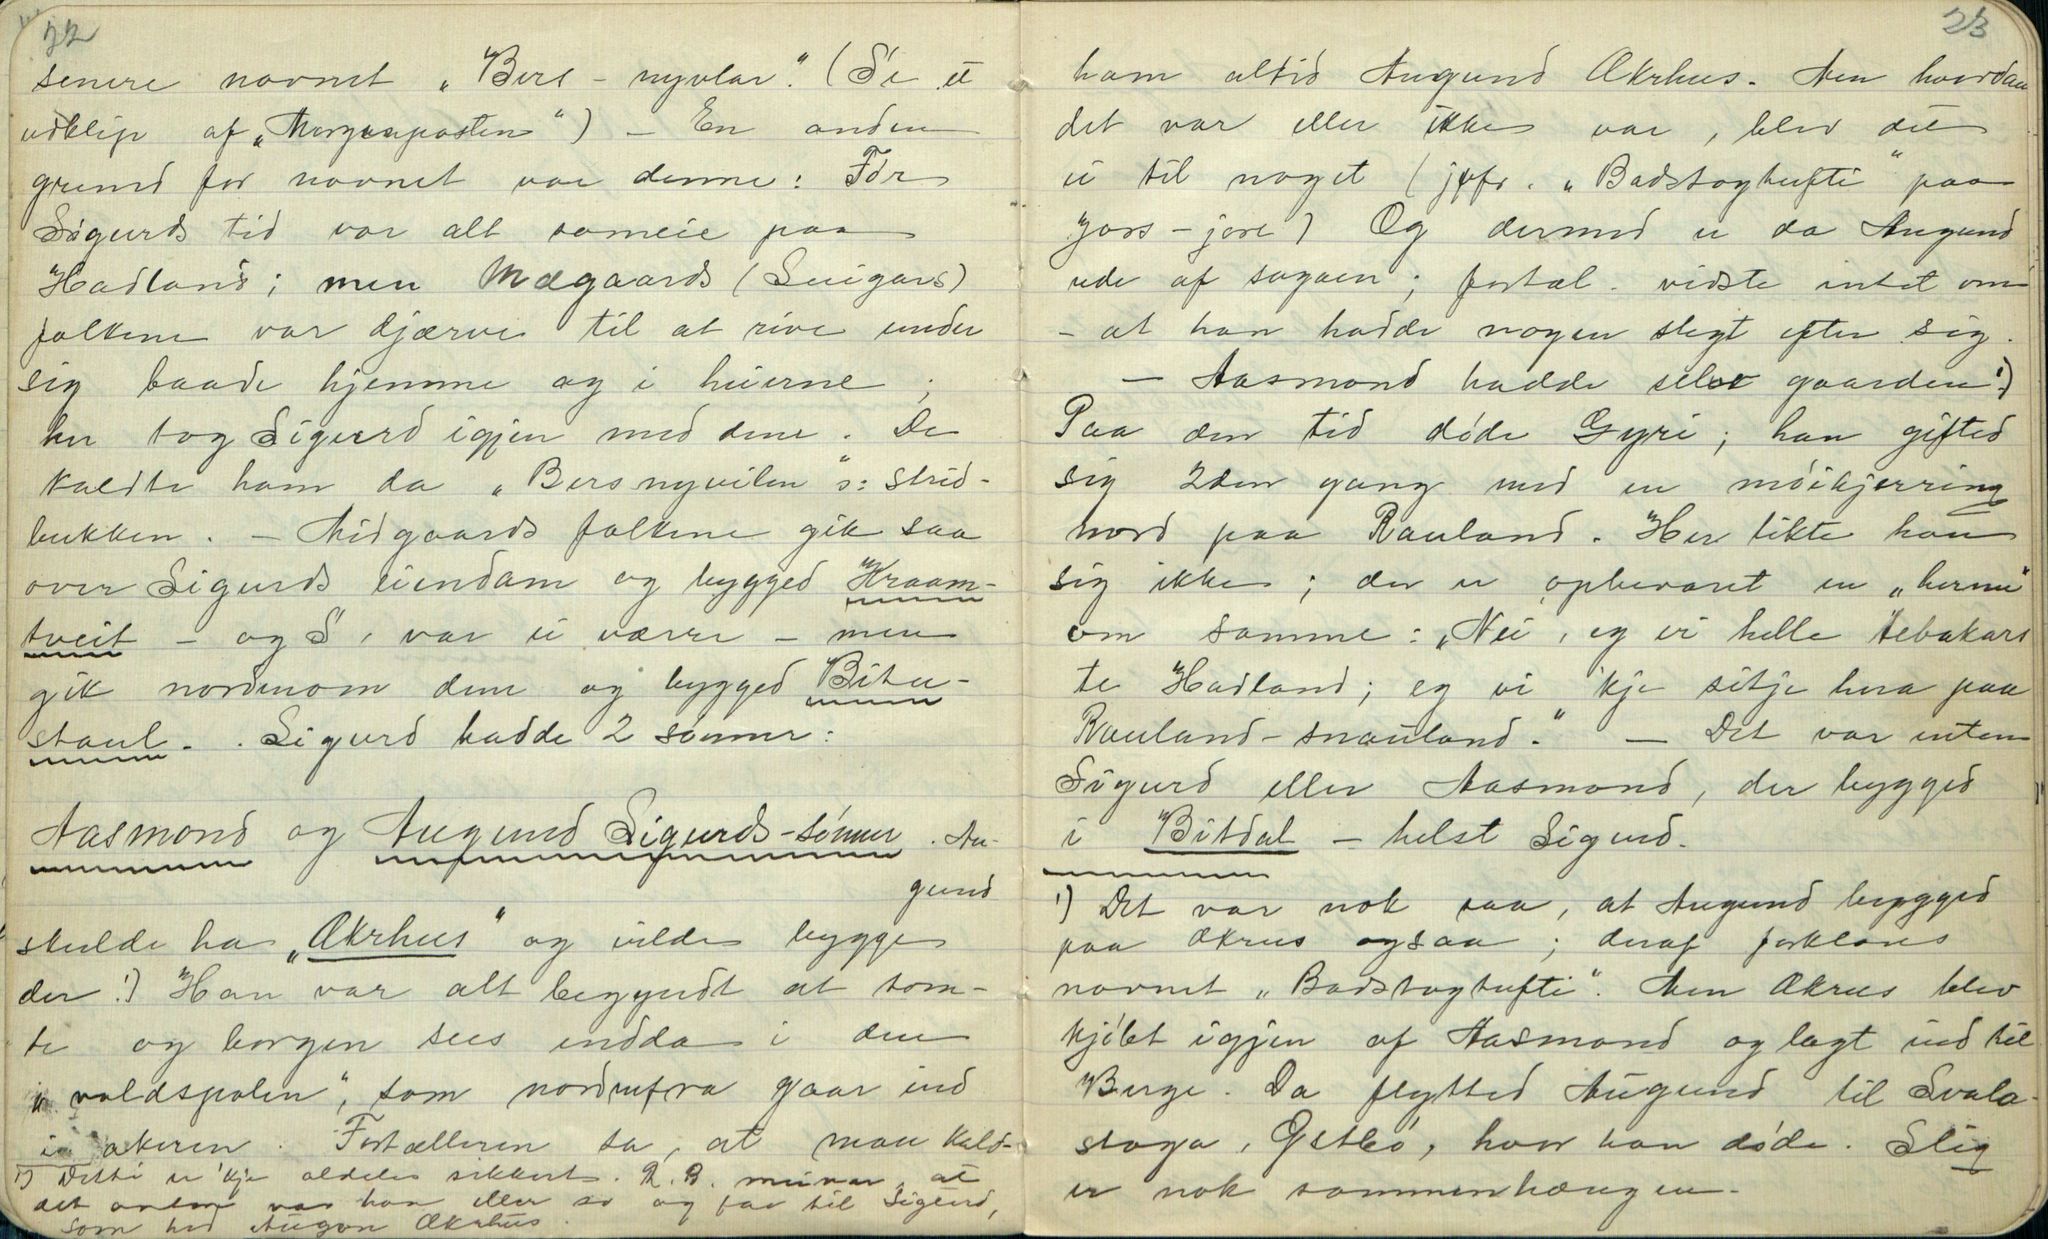 22
senere navnet „Bers-nyvlar". (Se et
udklip af „Morgenposten") – En anden
grund for navnet var denne: Før
Sigurds tid var alt sameie paa
Hadland; men Megaards (Suigars)
folkene var djærve til at rive under
sig baade hjemme og i heierne;
her tog Sigurd igjen med dem. De
kaldte ham da „Bersnyvilen" ɔ: strid-
bukken. – Midgaards folkene gik saa
over Sigurds eiendom og bygged Kraam-
tveit – og S. var ei værre – men
gik nordenom dem og bygged Bitu-
staul. Sigurd hadde 2 sønner:
Aasmond og Augund Sigurds-sønner. Au-
gund
skulde ha „Økrhus" og vilde bygge
der.¹) Han var alt begyndt at tom-
te og borgen sees endda i den
„voldspolen", som nordenfra gaar ind
i akeren. Fortælleren sa, at man kald-
¹) Dette er 'kje aldeles sikkert. R. B. meiner, at
det anten var han eller so og far til Sigurd,
som hed Augon Økrhus.
23
ham altid Augund Økrhus. Men hvordan
det var eller ikke var, blev det
ei til noget (jvfr. „Badstogtufti" paa
Jors-jore) Og dermed er da Augund
ude af sagaen; fortæl. vidste intet om
– at han hadde nogen slegt efter sig.
– Aasmond hadde selve gaarden.¹)
Paa den tid døde Gyri; han gifted
sig 2den gang med en møikjerring
nord paa Rauland. Her likte han
sig ikke; der er opbevaret en „herme"
om samme: „Nei, eg vi helle tebakars
te Hadland; eg vi 'kje sitje hera paa
Rauland-snauland." – Det var enten
Sigurd eller Aasmond, der bygged
i Bitdal – helst Sigurd.
¹) Det var nok saa, at Augund bygged
paa Økrus ogsaa; deraf forklares
navnet „Badstogtufti". Men Økrus blev
kjøbt igjen af Aasmond og lagt ind til
Berge. Da flytted Augund til Svala-
stoga, Øстbø, hvor han døde. Slig
er nok sammenhængen.